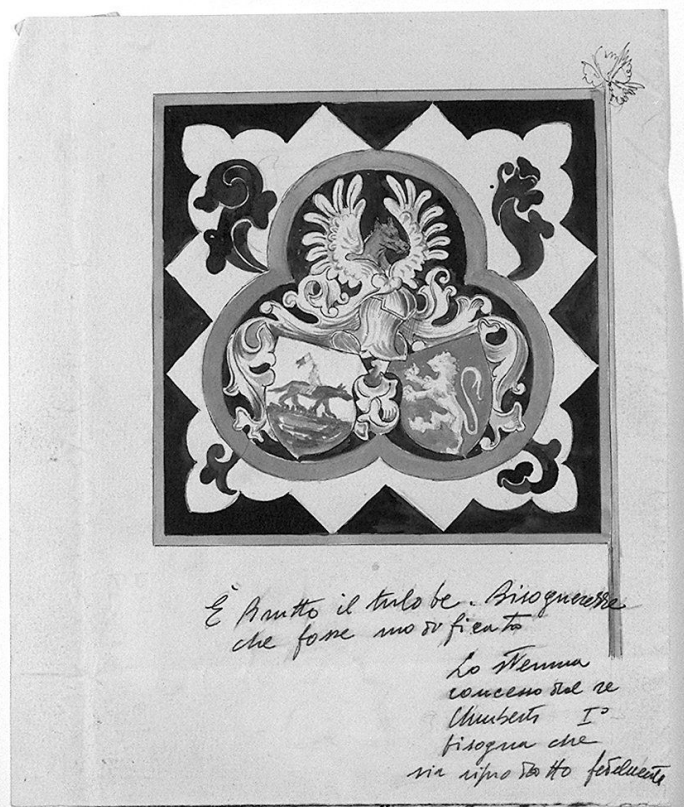 È Brutto il trilobe. Bisognerebbe
che fosse modificato
Lo stemma
concesso dal re
Umberto Iº
bisogna che
sia riprodotto fedelmente